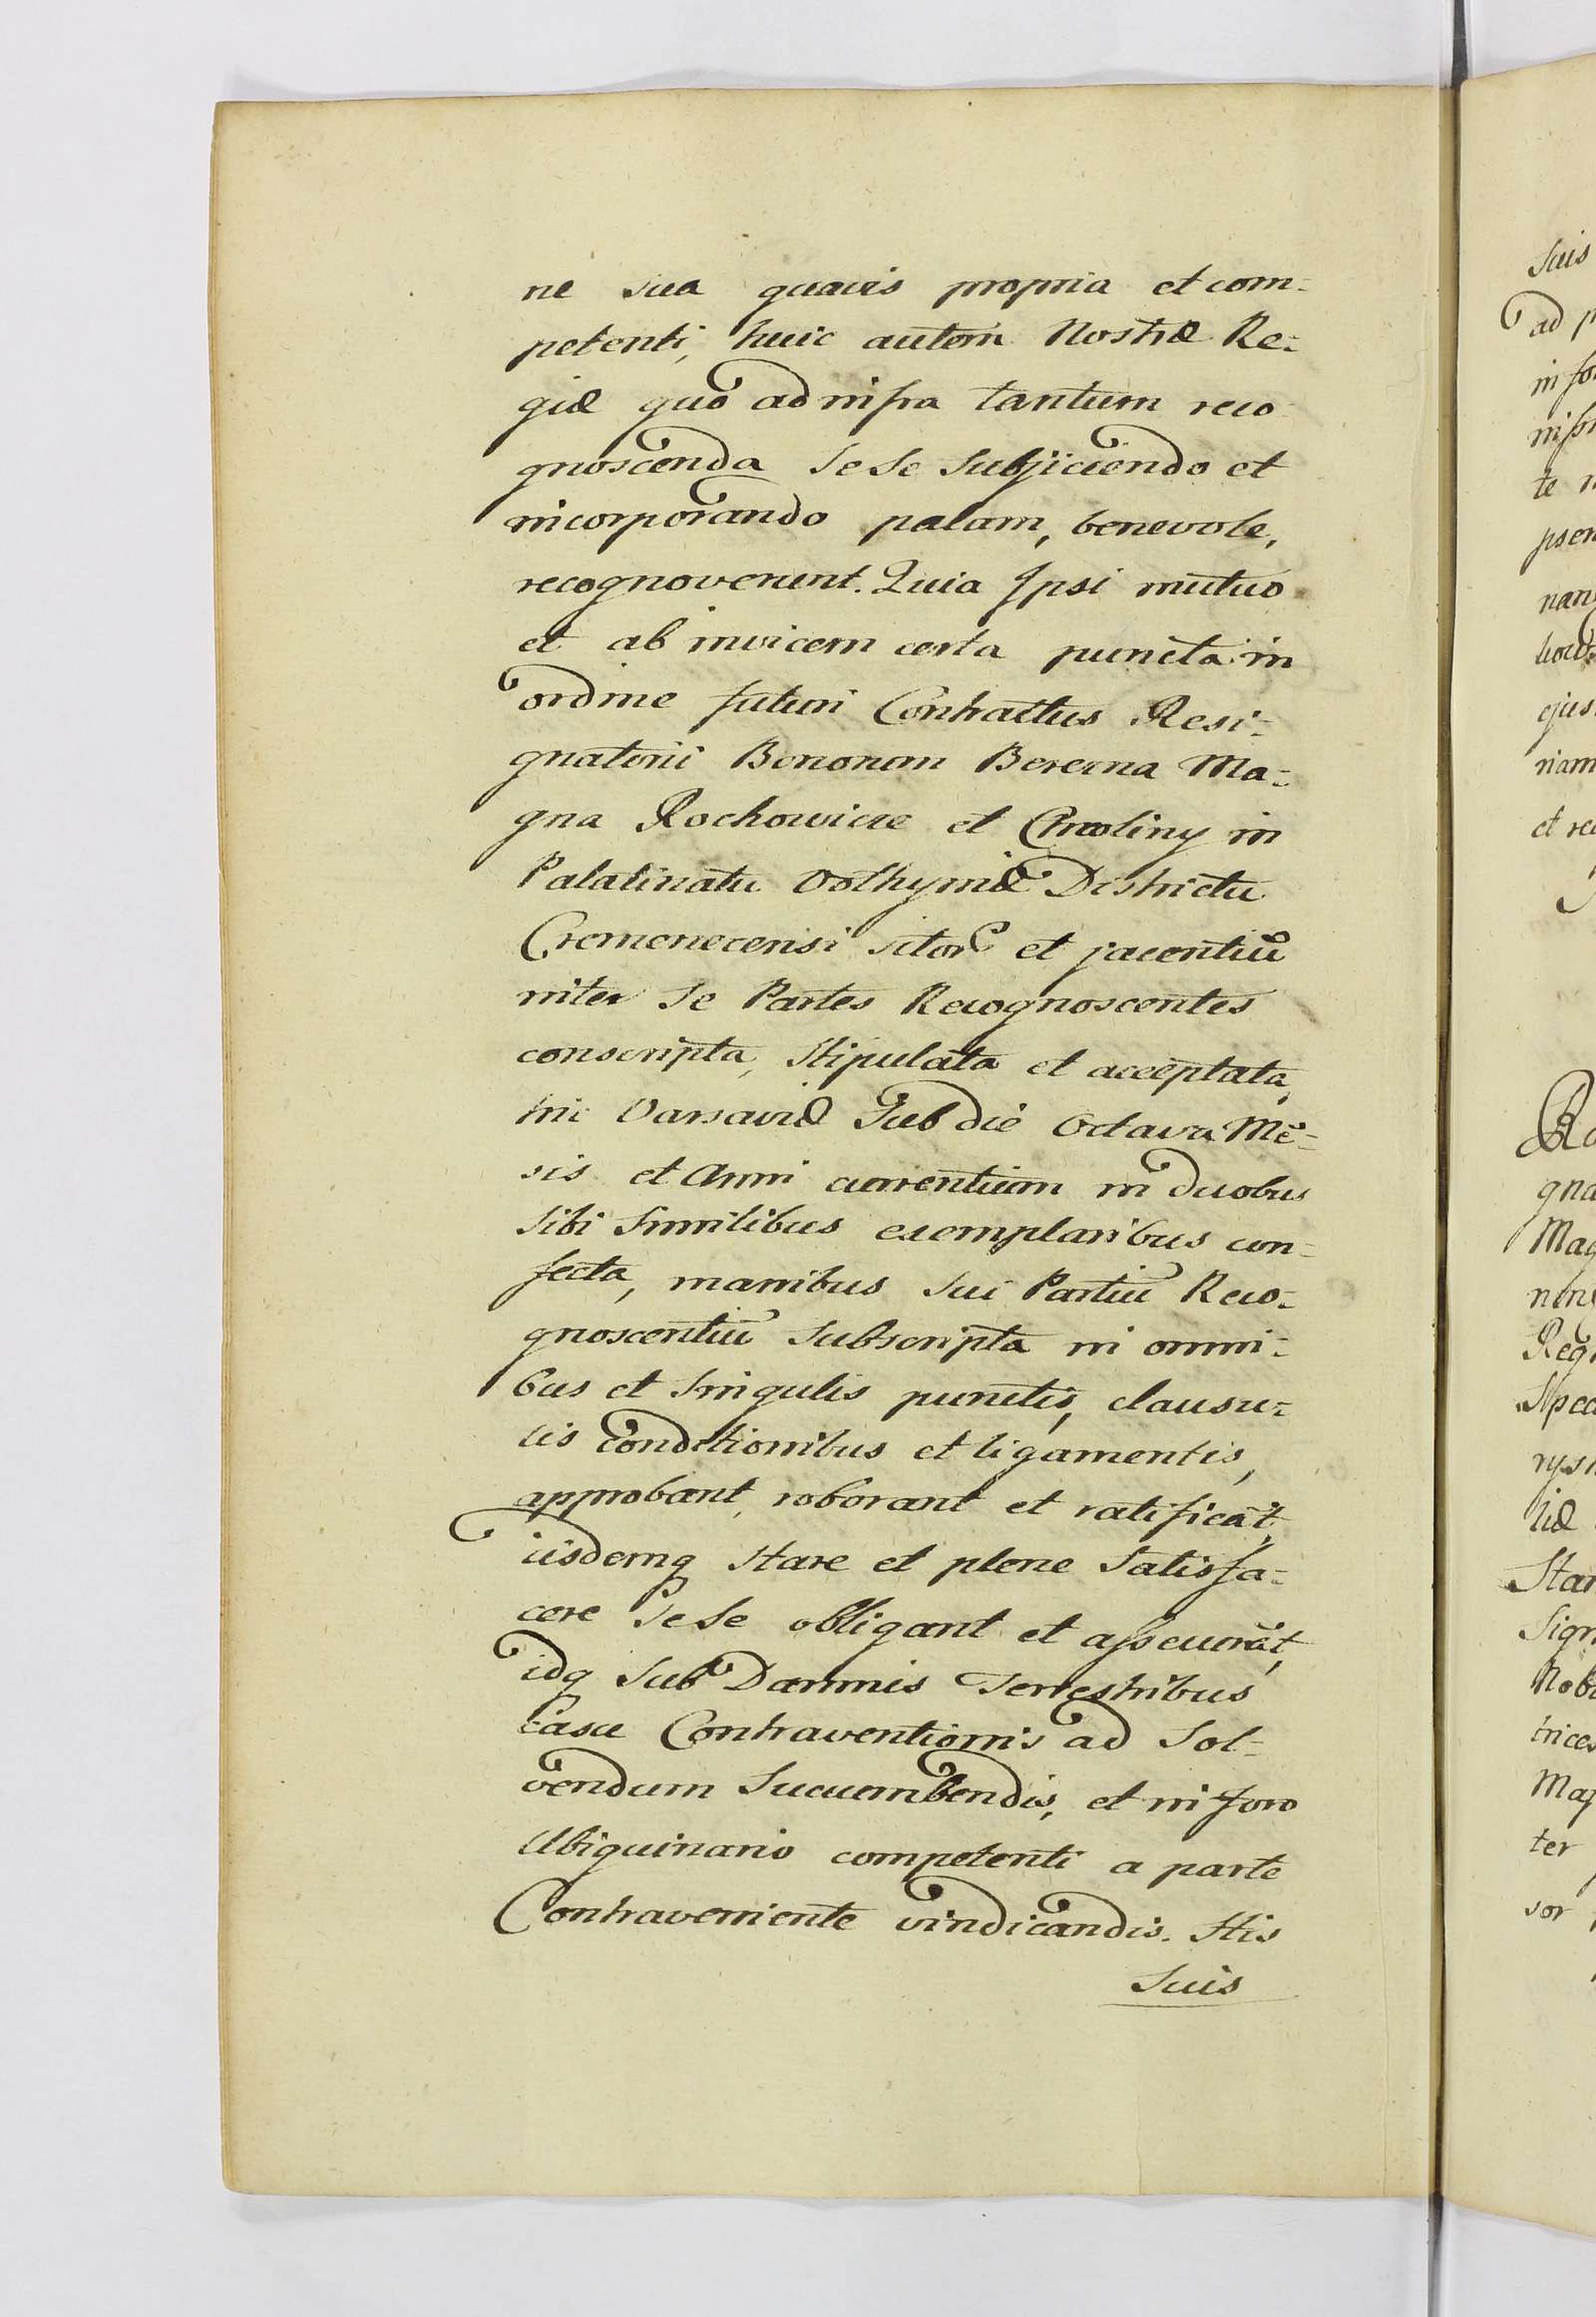 ne sua quavis propria et com-
petenti, huic autem Nostræ Re-
giæ quo ad infra tantum reco
gnoscenda sese subjiciendo et
incorporando palam, benevole,
recognoverunt. Quia Ipsi mutuo
et ab invicem certa puncta in
ordine futuri Contractus Resi-
gnatorii Bonorum Berezna Ma-
gna Rochowice et in
Palatinatu Volhyniæ Districtu
Cremenecensi sitor. et jacentiū
inter se Partes Recognoscentes
conscripta, stipulata et acceptata,
hic Varsaviæ Sub die Octava Mē-
sis et Anni currentium in duobus
sibi similibus exemplaribus con-
fecta, manibus sui Partiū Reco-
gnoscentiū subscripta in omni-
bus et singulis punctis, clausu-
lis conditionibus et ligamentis,
approbant, roborant et ratificāt,
iisdemq stare et plene satisfa-
cere sese obligant et assecurāt,
idq sub Damnis terrestribus
casu Contraventionis ad sol-
vendum succumbendis, et in foro
Ubiquinario competenti a parte
Contraveniente vindicandis. His
Suis
Suis
ad
te
ejus
riam
gna
Mag
Reg
ter
sor